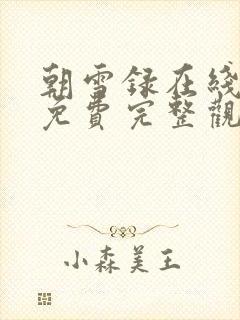 朝雪録在綫
免費完整觀
小森美王